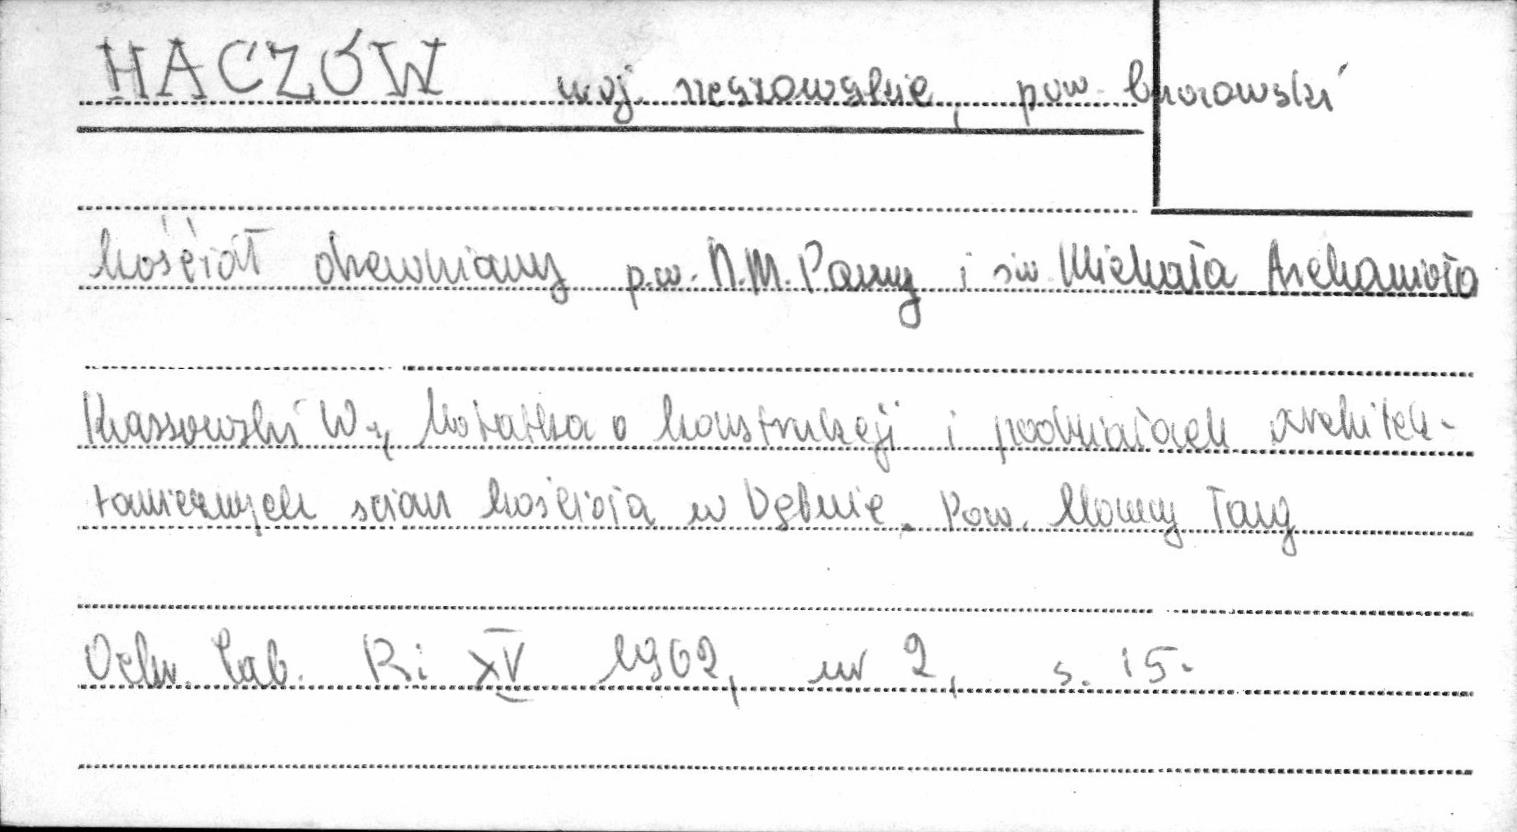 HACZÓW woj. rzeszowskie, pow. brzozowski
Kościół drewniany p.w. N.M. Panny i św Michała Archanioła
Krassowski W., Notatka o konstrukcji i podziałach architek-
tonicznych ścian kościoła w Dębnie. Pow. Nowy Targ
Ochr. Zab. R: XV 1962, nr 2, s. 15.